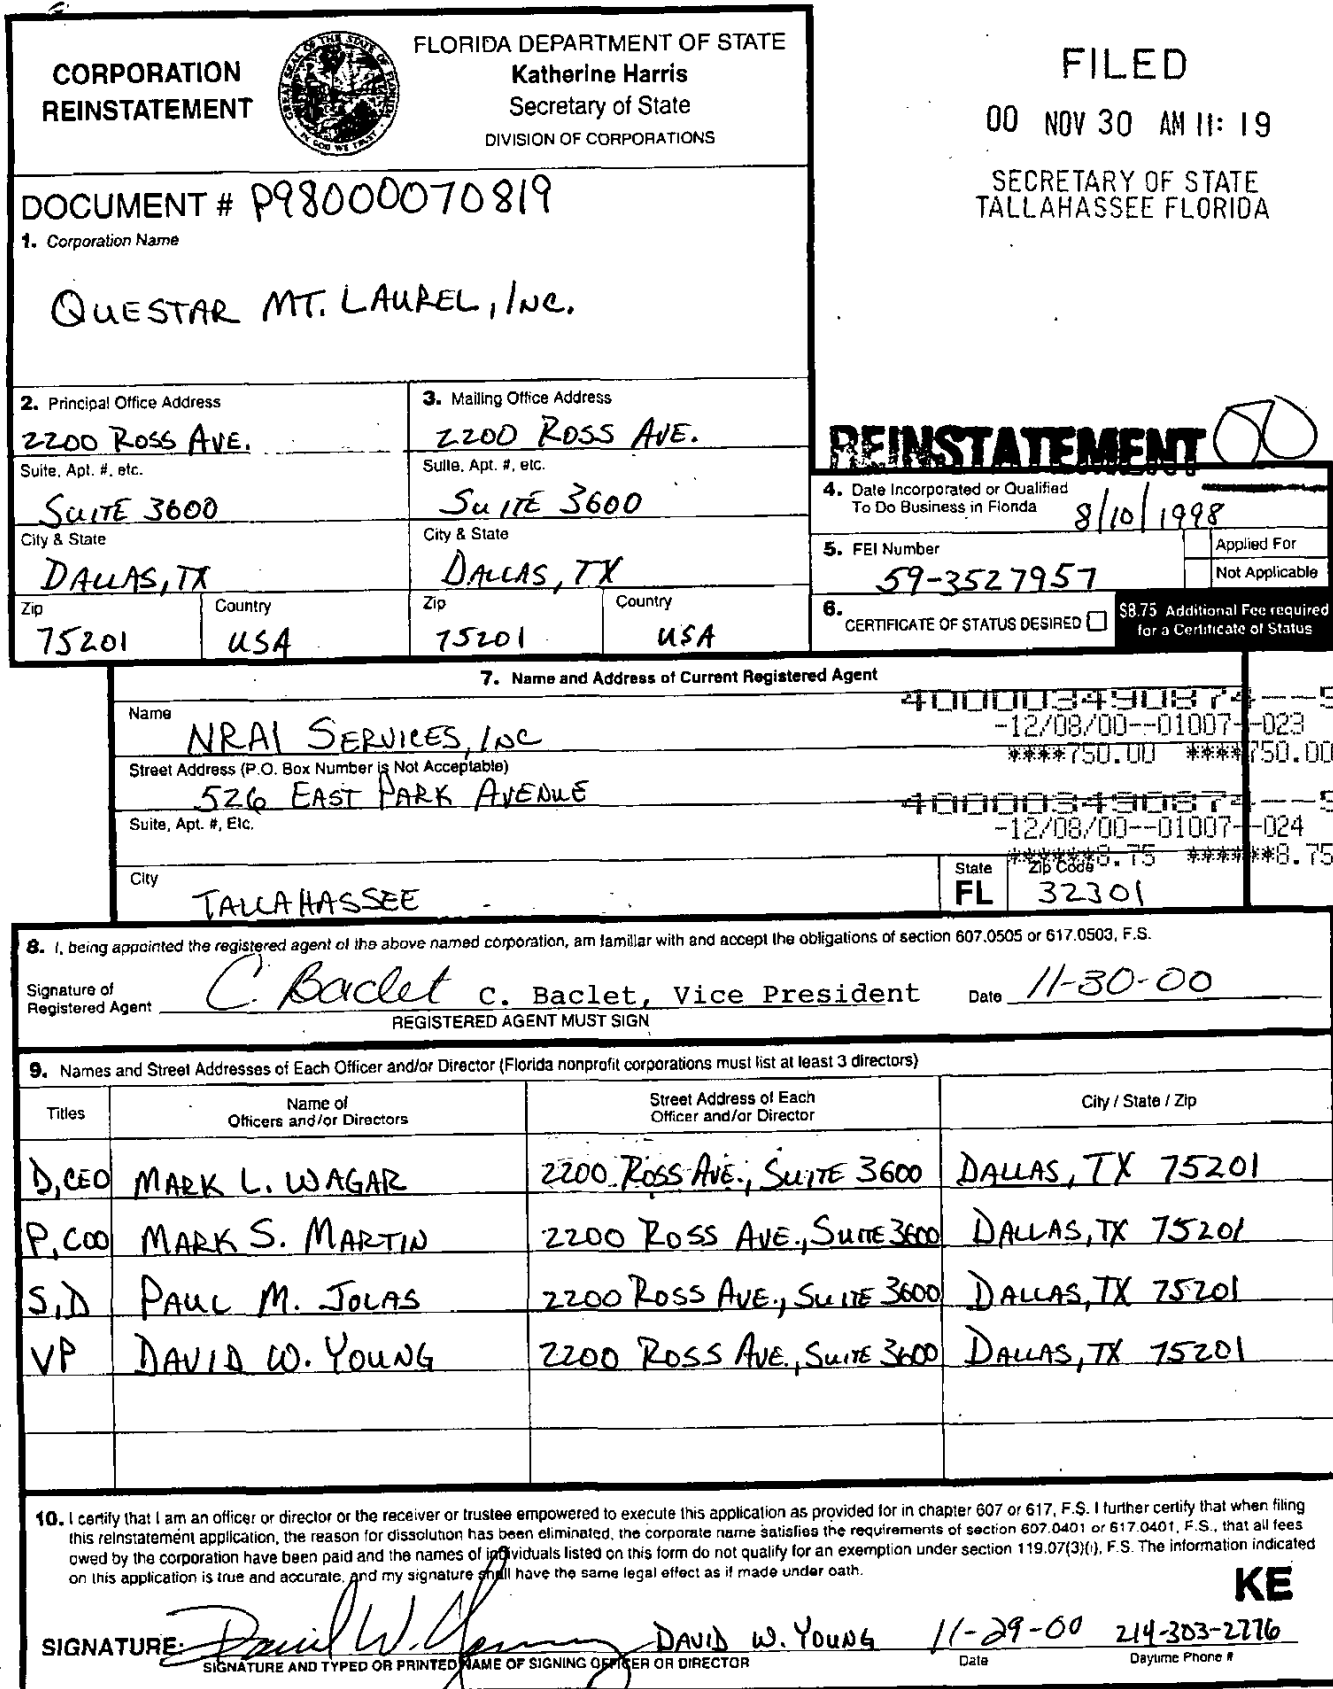 CORPORATION
REINSTATEMENT
FLORIDA DEPARTMENT OF STATE
Katherine Harris
Secretary of State
DIVISION OF CORPORATIONS
FILED
00 NOV 30 AM 11: 19
SECRETARY OF STATE
TALLAHASSEE FLORIDA
DOCUMENT # P98000070819
1. Corporation Name
QUESTAR MT. LAUREL, INC.
2. Principal Office Address
2200 ROSS AVE.
Suite, Apt. #, etc.
SUITE 3600
City & State
DALLAS, TX
Zip Country
75201 USA
3. Mailing Office Address
2200 ROSS AVE.
Suite, Apt. #, etc.
SUITE 3600
City & State
DALLAS, TX
Zip Country
75201 USA
REINSTATEMENT
4. Date Incorporated or Qualified
To Do Business in Florida
8/10/1998
5. FEI Number
59-3527957
Applied For
Not Applicable
6. CERTIFICATE OF STATUS DESIRED
$8.75 Additional Fee required
for a Certificate of Status
7. Name and Address of Current Registered Agent
Name
NRAI SERVICES, INC
400003490874--9
-12/08/00--01007--023
****750.00 ****750.00
Street Address (P.O. Box Number is Not Acceptable)
526 EAST PARK AVENUE
Suite, Apt. #, Etc.
400003490874--9
-12/08/00--01007--024
******8.75 ******8.75
City
TALLAHASSEE
State
FL
Zip Code
32301
8. I, being appointed the registered agent of the above named corporation, am familiar with and accept the obligations of section 607.0505 or 617.0503, F.S.
Signature of
Registered Agent
C. Baclet C. Baclet, Vice President Date 11-30-00
REGISTERED AGENT MUST SIGN
9. Names and Street Addresses of Each Officer and/or Director (Florida nonprofit corporations must list at least 3 directors)
Titles
Name of
Officers and/or Directors
Street Address of Each
Officer and/or Director
City / State / Zip
D, CEO MARK L. WAGAR 2200 ROSS AVE., SUITE 3600 DALLAS, TX 75201
P, COO MARK S. MARTIN 2200 ROSS AVE., SUITE 3600 DALLAS, TX 75201
S, D PAUL M. JOLAS 2200 ROSS AVE., SUITE 3600 DALLAS, TX 75201
VP DAVID W. YOUNG 2200 ROSS AVE., SUITE 3600 DALLAS, TX 75201
10. I certify that I am an officer or director or the receiver or trustee empowered to execute this application as provided for in chapter 607 or 617, F.S. I further certify that when filing
this reinstatement application, the reason for dissolution has been eliminated, the corporate name satisfies the requirements of section 607.0401 or 617.0401, F.S., that all fees
owed by the corporation have been paid and the names of individuals listed on this form do not qualify for an exemption under section 119.07(3)(i), F.S. The information indicated
on this application is true and accurate, and my signature shall have the same legal effect as if made under oath.
KE
SIGNATURE: David W. Young DAVID W. YOUNG 11-29-00 214-303-2776
SIGNATURE AND TYPED OR PRINTED NAME OF SIGNING OFFICER OR DIRECTOR Date Daytime Phone #